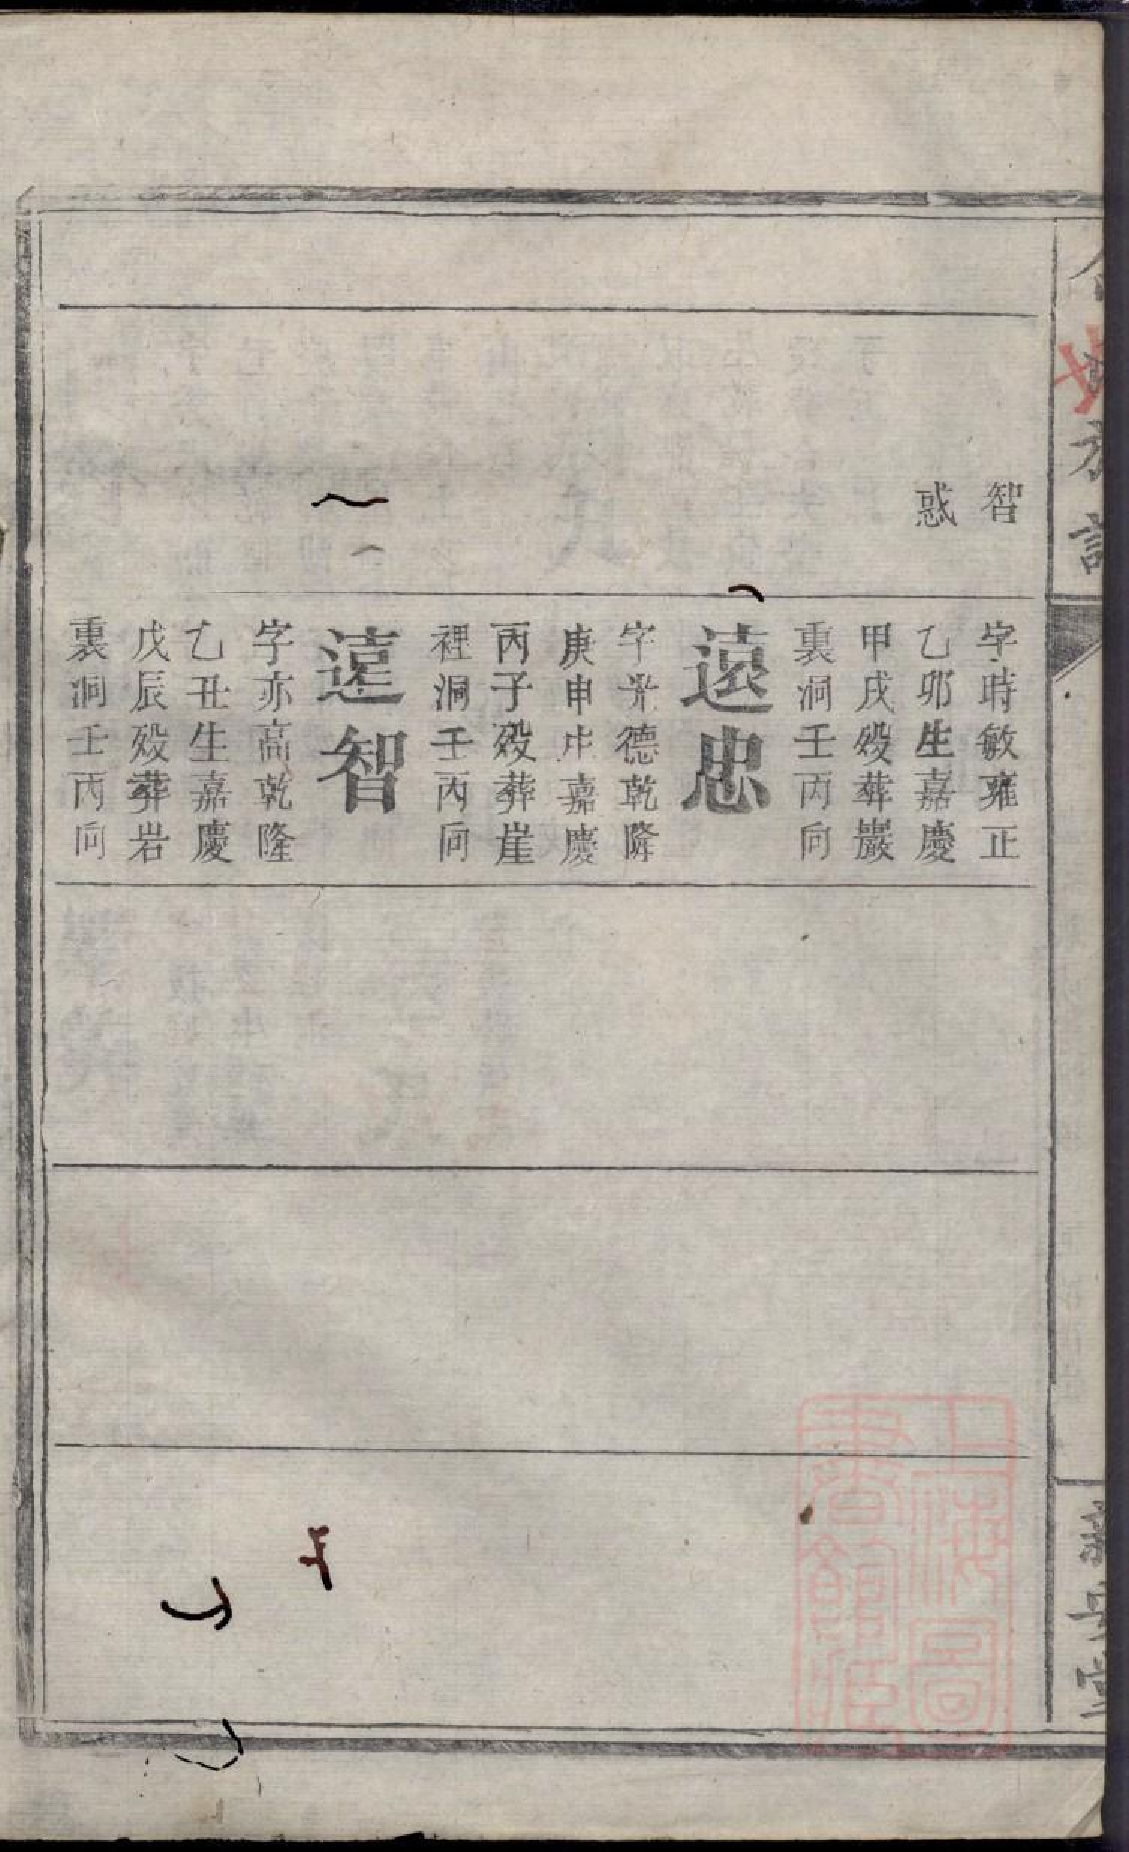 智
惑
字時敏雍正
乙卯生嘉慶
甲戌殁葬巖
裏洞壬丙向
遠忠
字光德乾隆
庚申生嘉慶
丙子殁葬崖
裡洞壬丙向
遠智
字亦高乾隆
乙丑生嘉慶
戊辰殁葬岩
裏洞壬丙向
上海圖
書館藏